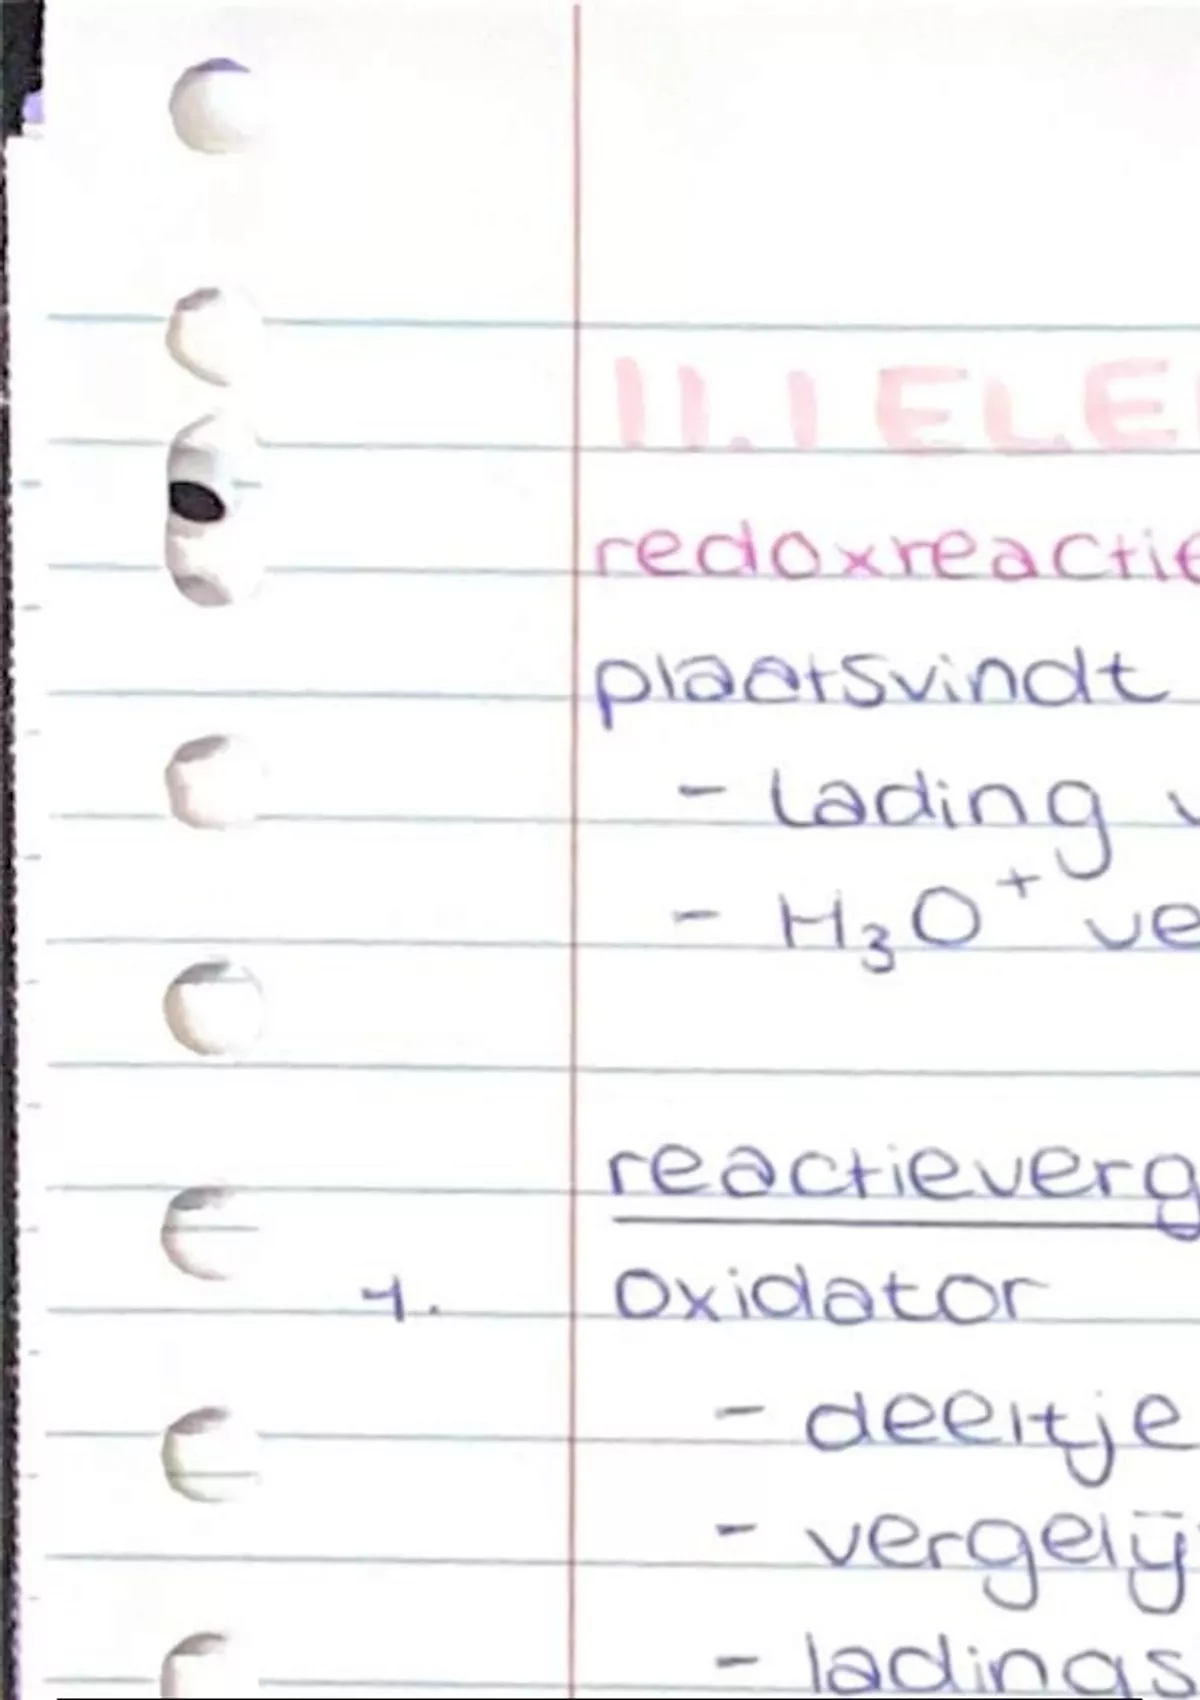 11.1 ELE
redoxreactie
plaatsvindt
- Lading v
- H₃O⁺ ve
reactieverg
1. oxidator
- deeltje
- vergelij
- ladings